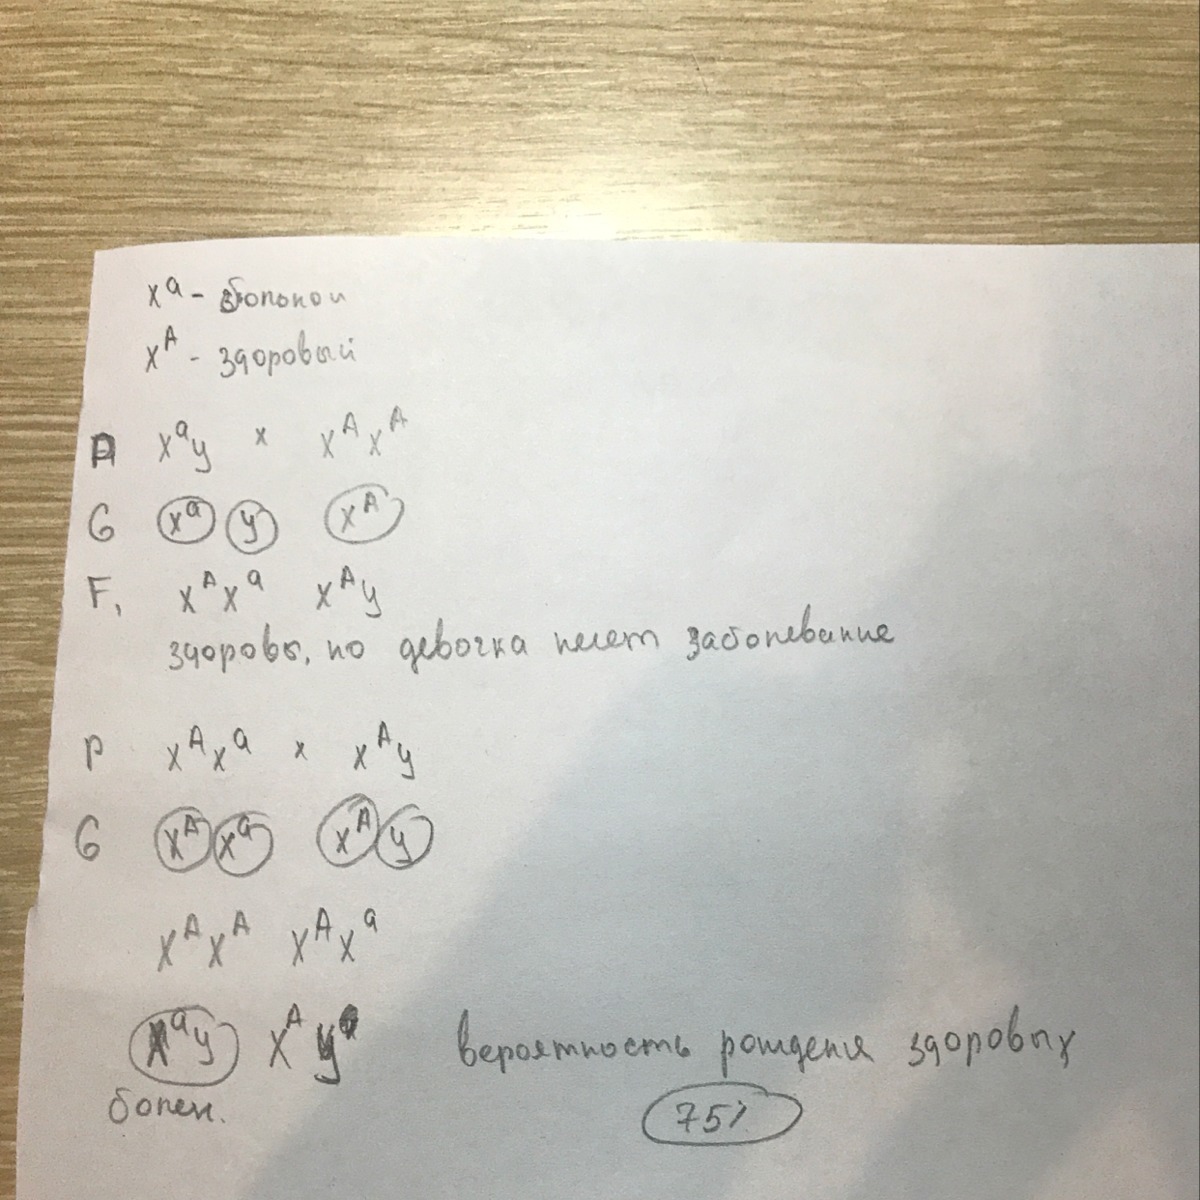 xᵃ - больной
xᴬ - здоровый
P xᵃy × xᴬxᴬ
G xᵃ y xᴬ
F₁ xᴬxᵃ xᴬy
здоровы, но девочка несет заболевание
P xᴬxᵃ × xᴬy
G xᴬ xᵃ xᴬ y
xᴬxᴬ xᴬxᵃ
xᵃy xᴬy вероятность рождения здоровых
болен. 75%